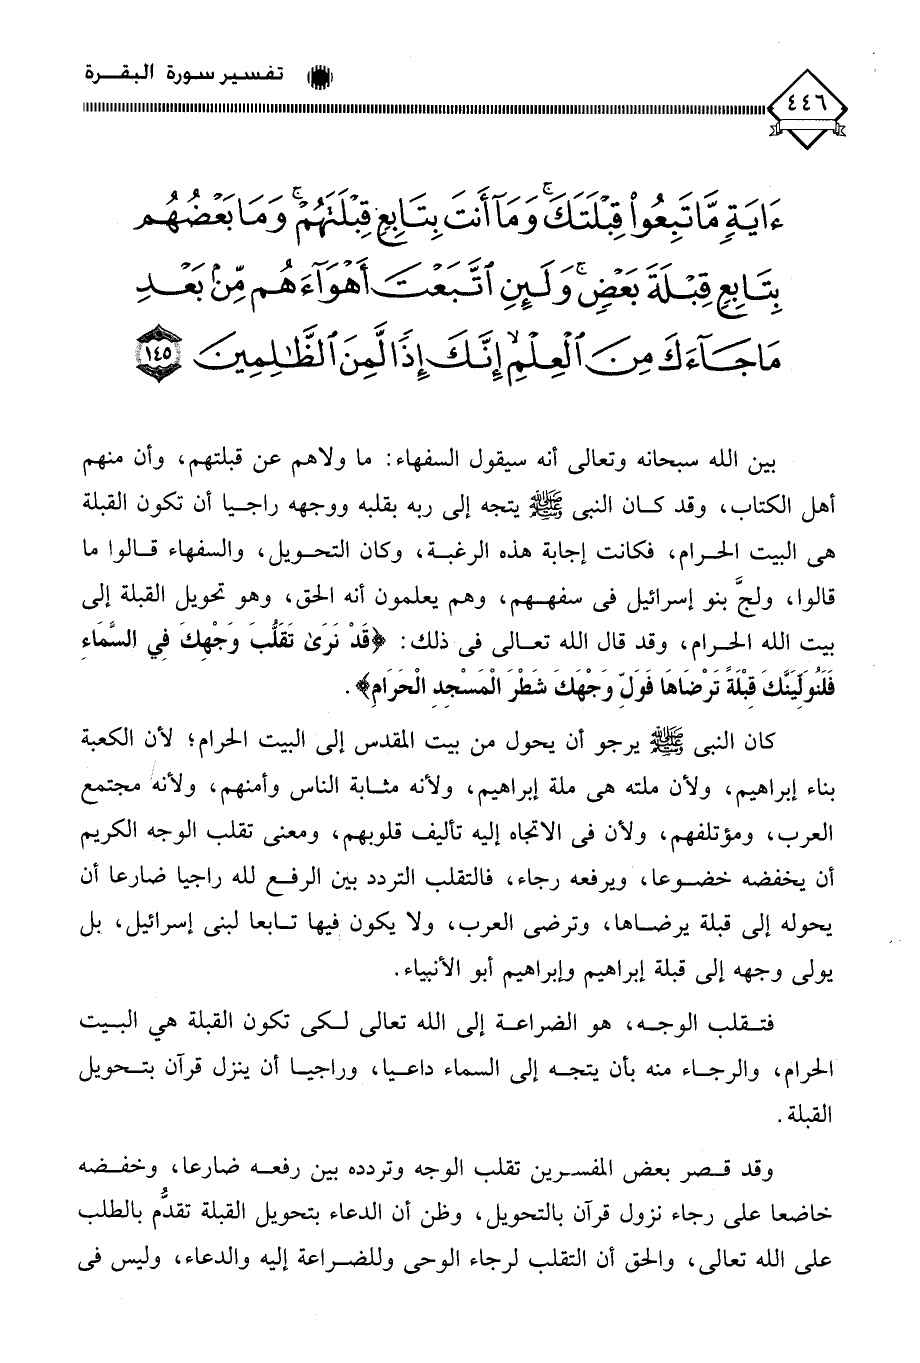 تفسير سورة البقرة
٤٤٦
ءَايَةٍ مَّا تَبِعُوا۟ قِبْلَتَكَ ۚ وَمَآ أَنتَ بِتَابِعٍ قِبْلَتَهُمْ ۚ وَمَا بَعْضُهُم
بِتَابِعٍ قِبْلَةَ بَعْضٍ ۚ وَلَئِنِ ٱتَّبَعْتَ أَهْوَآءَهُم مِّنۢ بَعْدِ
مَا جَآءَكَ مِنَ ٱلْعِلْمِ ۙ إِنَّكَ إِذًا لَّمِنَ ٱلظَّٰلِمِينَ ١٤٥
بين الله سبحانه وتعالى أنه سيقول السفهاء: ما ولاهم عن قبلتهم، وأن منهم
أهل الكتاب، وقد كان النبى ﷺ يتجه إلى ربه بقلبه ووجهه راجيا أن تكون القبلة
هى البيت الحرام، فكانت إجابة هذه الرغبة، وكان التحويل، والسفهاء قالوا ما
قالوا، ولجَّ بنو إسرائيل فى سفههم، وهم يعلمون أنه الحق، وهو تحويل القبلة إلى
بيت الله الحرام، وقد قال الله تعالى فى ذلك: ﴿قَدْ نَرَىٰ تَقَلُّبَ وَجْهِكَ فِي السَّمَاءِ
فَلَنُوَلِّيَنَّكَ قِبْلَةً تَرْضَاهَا فَوَلِّ وَجْهَكَ شَطْرَ الْمَسْجِدِ الْحَرَامِ﴾.
كان النبى ﷺ يرجو أن يحول من بيت المقدس إلى البيت الحرام؛ لأن الكعبة
بناء إبراهيم، ولأن ملته هى ملة إبراهيم، ولأنه مثابة الناس وأمنهم، ولأنه مجتمع
العرب، ومؤتلفهم، ولأن فى الاتجاه إليه تأليف قلوبهم، ومعنى تقلب الوجه الكريم
أن يخفضه خضوعا، ويرفعه رجاء، فالتقلب التردد بين الرفع لله راجيا ضارعا أن
يحوله إلى قبلة يرضاها، وترضى العرب، ولا يكون فيها تابعا لبنى إسرائيل، بل
يولى وجهه إلى قبلة إبراهيم وإبراهيم أبو الأنبياء.
فتقلب الوجه، هو الضراعة إلى الله تعالى لكى تكون القبلة هي البيت
الحرام، والرجاء منه بأن يتجه إلى السماء داعيا، وراجيا أن ينزل قرآن بتحويل
القبلة.
وقد قصر بعض المفسرين تقلب الوجه وتردده بين رفعه ضارعا، وخفضه
خاضعا على رجاء نزول قرآن بالتحويل، وظن أن الدعاء بتحويل القبلة تقدُّم بالطلب
على الله تعالى، والحق أن التقلب لرجاء الوحى وللضراعة إليه والدعاء، وليس فى